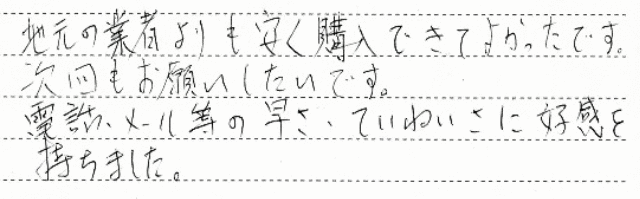 地元の業者よりも安く購入できてよかったです。
次回もお願いしたいです。
電話、メール等の早さ、ていねいさに好感を
持ちました。